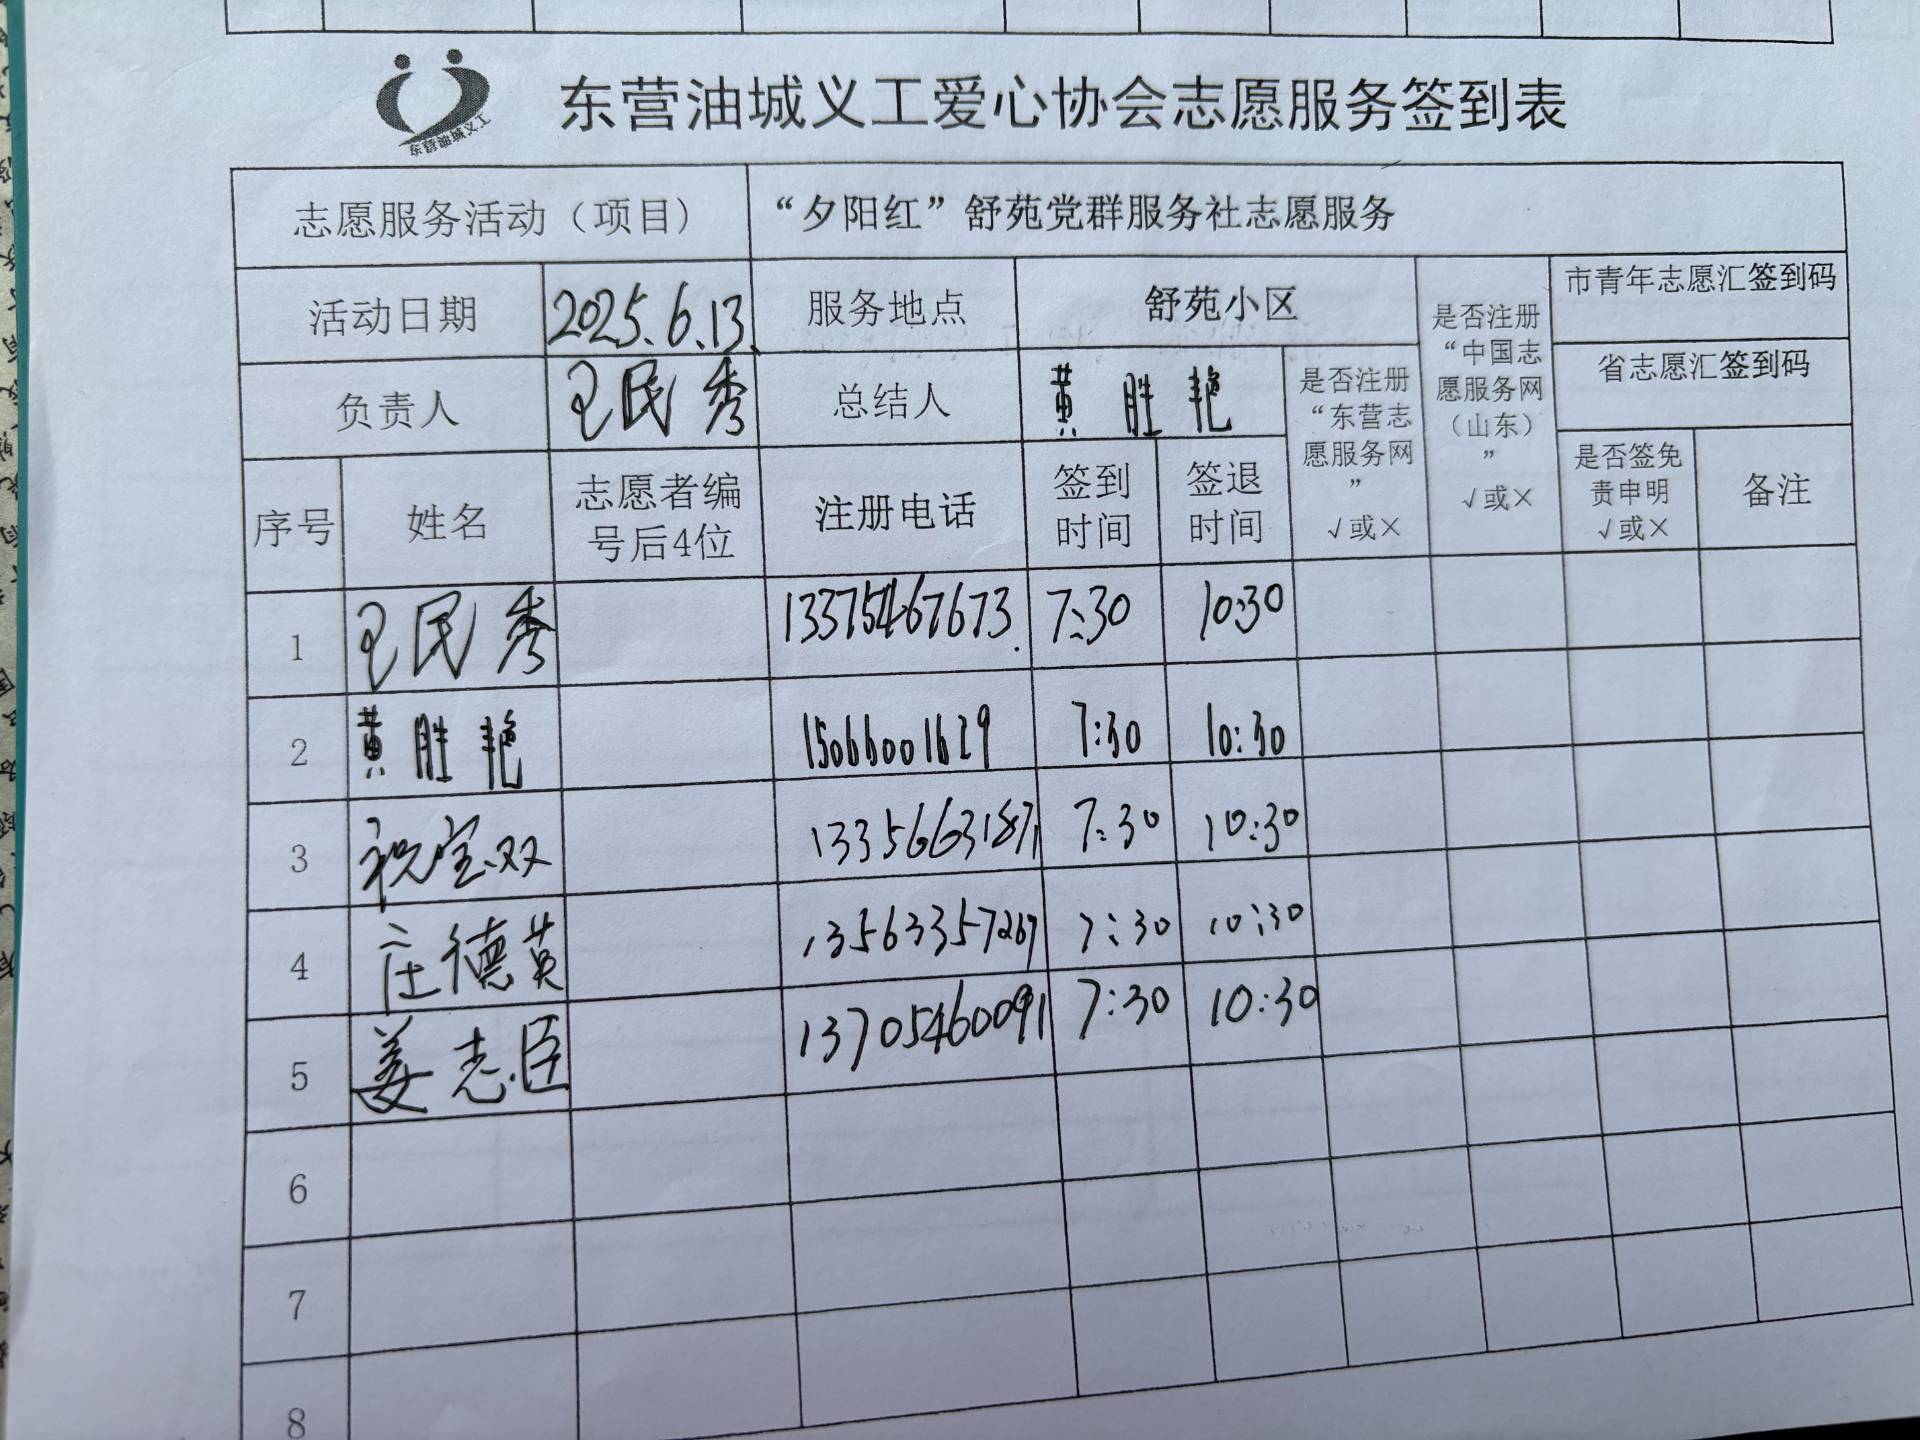 东营油城义工
东营油城义工爱心协会志愿服务签到表
志愿服务活动（项目） “夕阳红”舒苑党群服务社志愿服务
活动日期 2025.6.13. 服务地点 舒苑小区 是否注册“中国志愿服务网（山东）” √或× 市青年志愿汇签到码
省志愿汇签到码
负责人 王民秀 总结人 黄胜艳 是否注册“东营志愿服务网” √或×
序号 姓名 志愿者编号后4位 注册电话 签到时间 签退时间 是否签免责申明 √或× 备注
1 王民秀 13375467673. 7:30 10:30
2 黄胜艳 15066001629 7:30 10:30
3 祝宝双 13356631871 7:30 10:30
4 庄德英 13563357267 7:30 10:30
5 姜志臣 13705460091 7:30 10:30
6
7
8